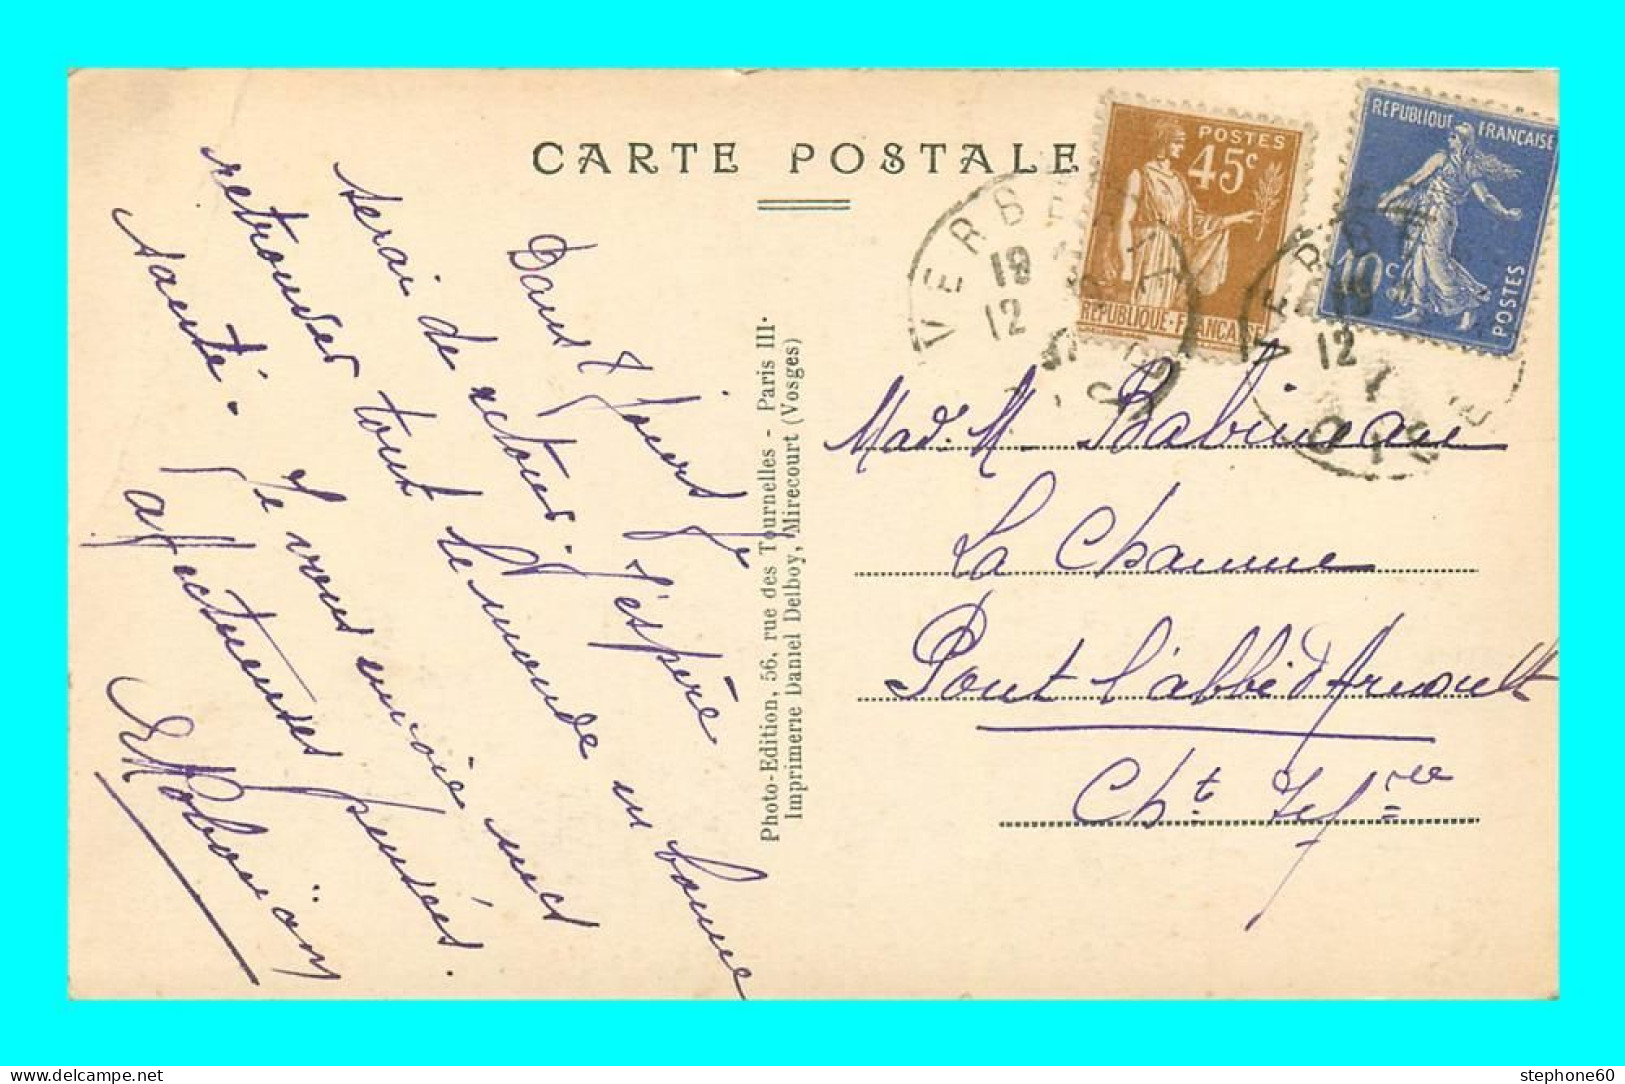 CARTE POSTALE
POSTES
45c
RÉPUBLIQUE-FRANÇAISE
RÉPUBLIQUE FRANÇAISE
10c
POSTES
VERB
19
12
12
OISE
Dans 8 jours je
serai de retour. J'espère
retrouver tout le monde en bonne
santé. Je vous envoie mes
affectueuses pensées.
Photo-Edition, 56, rue des Tournelles - Paris III.
Imprimerie Daniel Delboy, Mirecourt (Vosges)
Mad. M. Babineau
La Chaume
Pont l'abbé d'Arnoult
Cht Infre
www.delcampe.net
stephone60